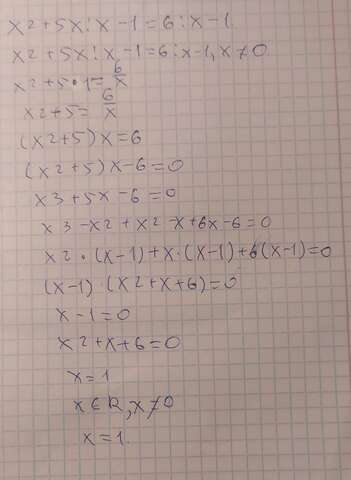 x2+5x:x-1=6:x-1
x2+5x:x-1=6:x-1, x≠0
x2+5·1=6/x
x2+5=6/x
(x2+5)x=6
(x2+5)x-6=0
x3+5x-6=0
x3-x2+x2-x+6x-6=0
x2·(x-1)+x·(x-1)+6(x-1)=0
(x-1)·(x2+x+6)=0
x-1=0
x2+x+6=0
x=1
x∈R, x≠0
x=1.